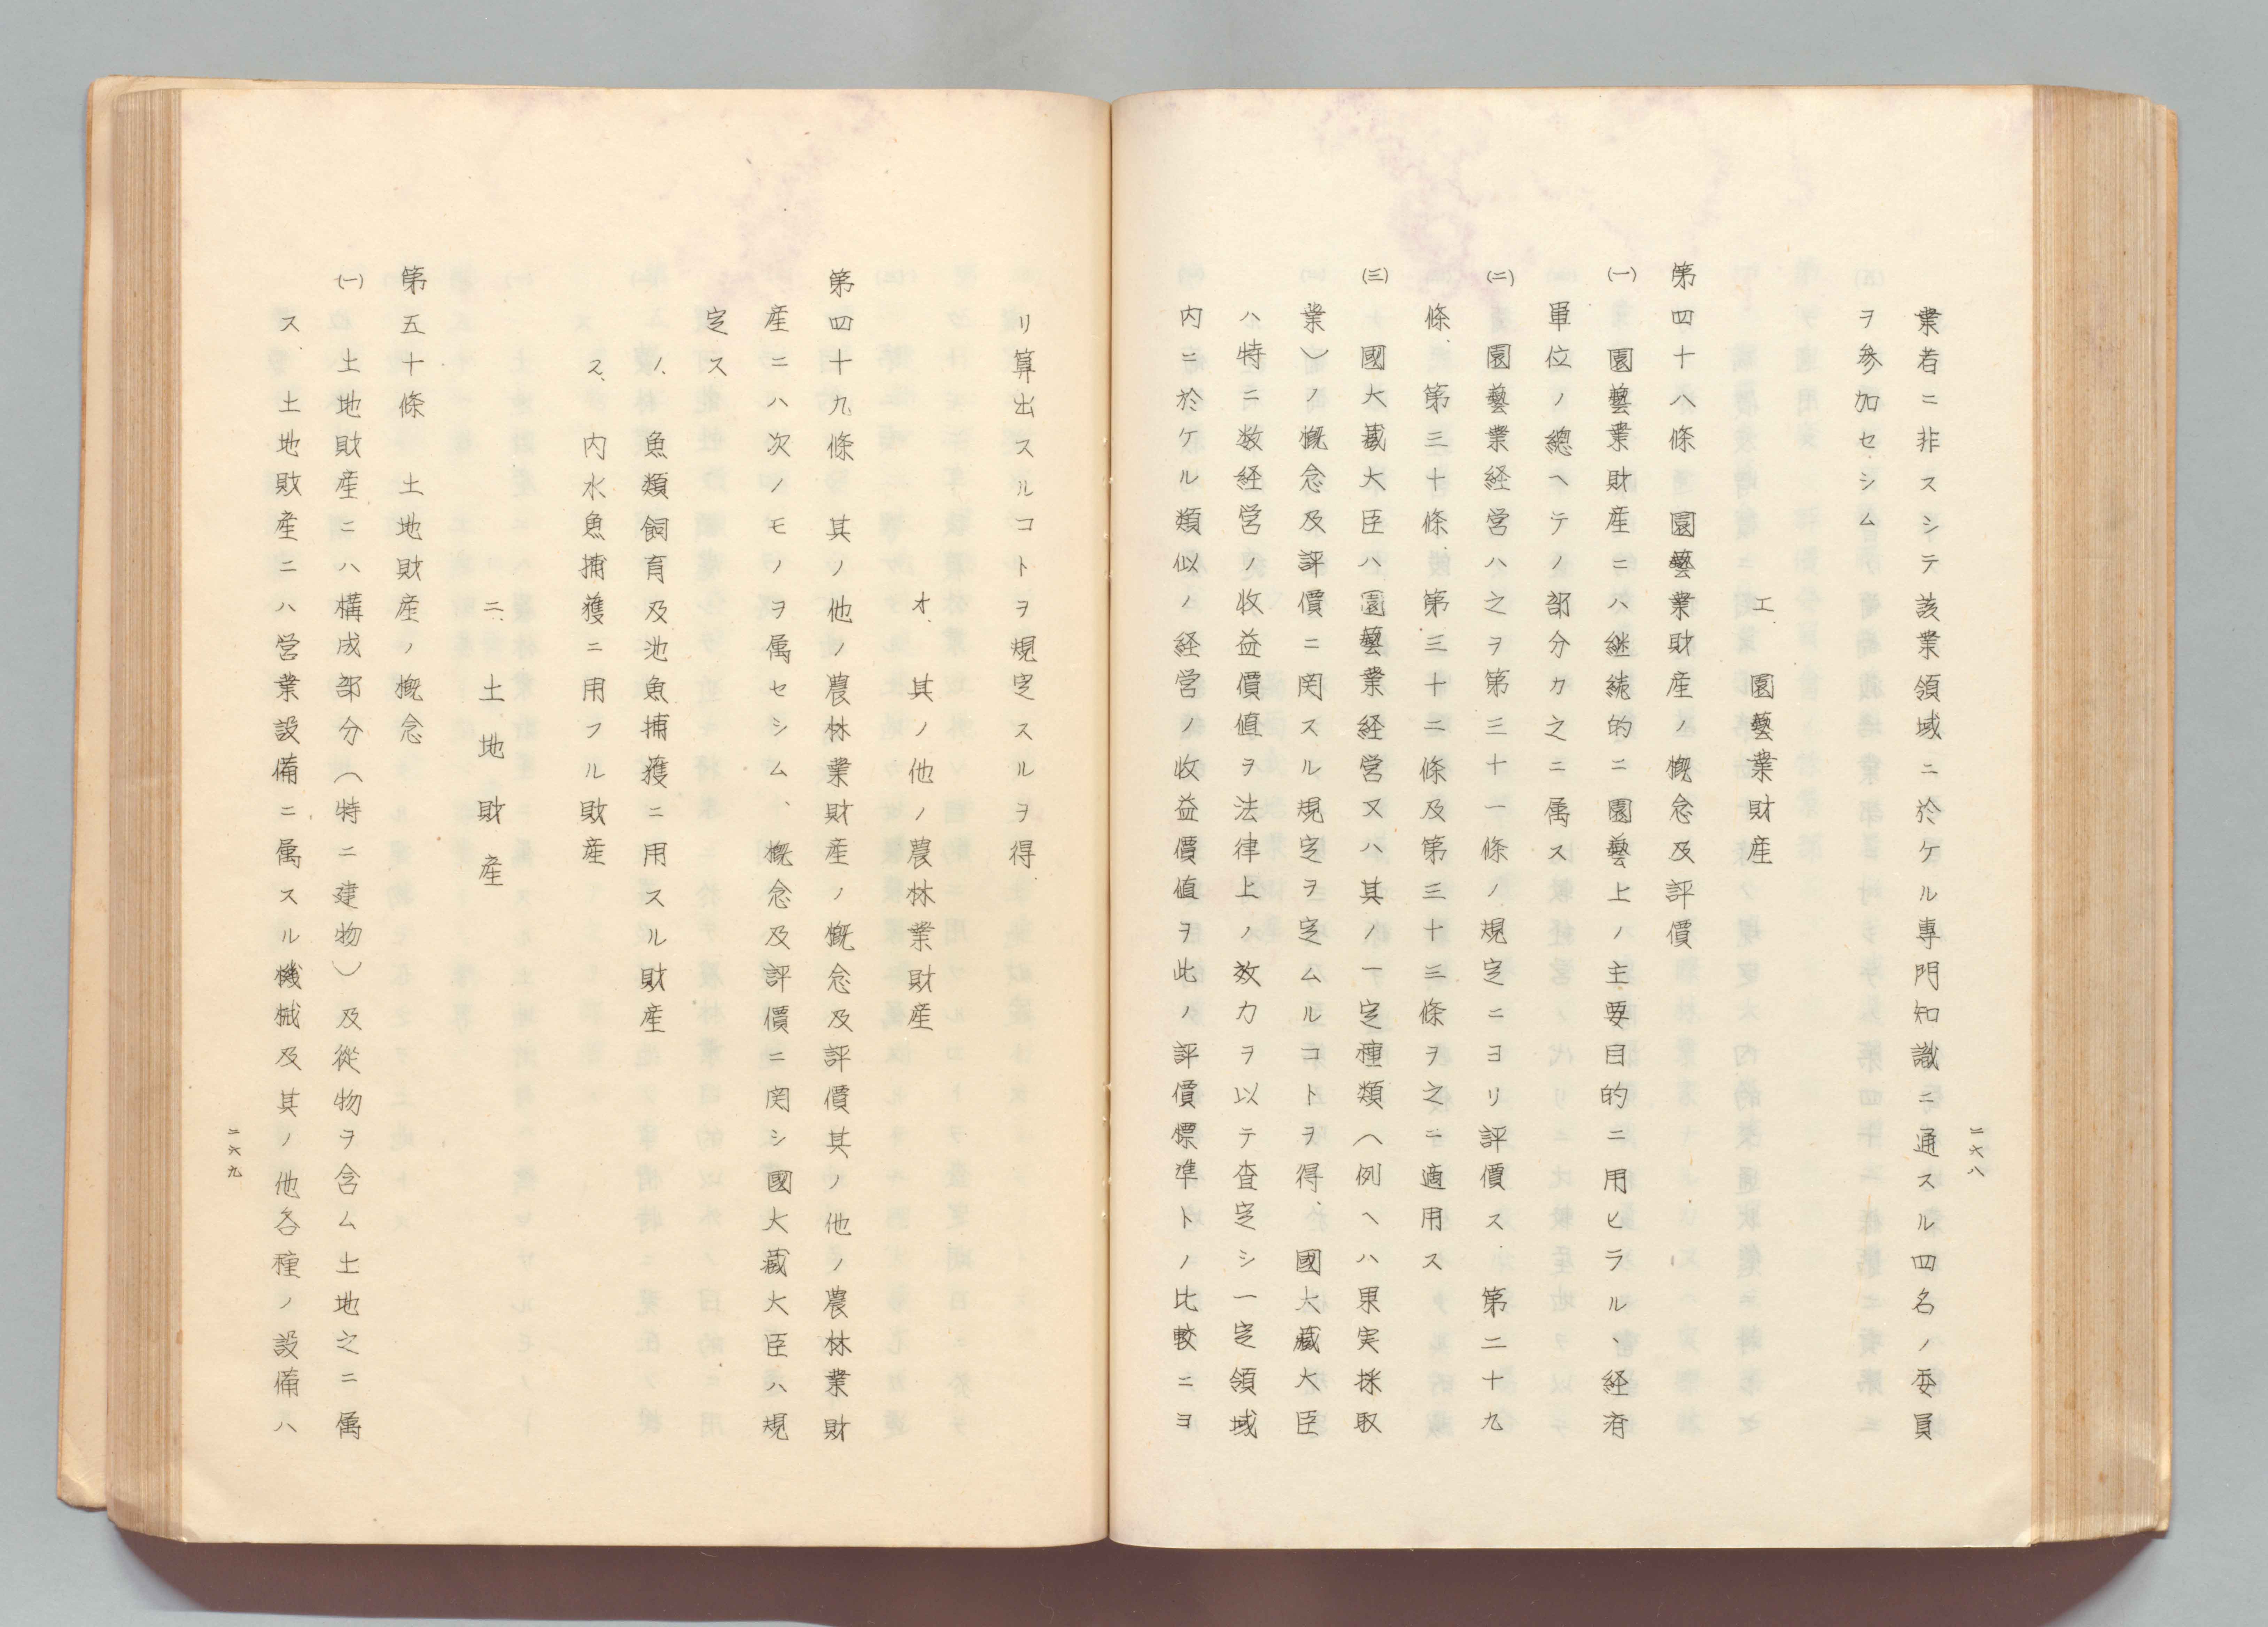 二六八
業者ニ非スシテ該業領域ニ於ケル專門知識ニ通スル四名ノ委員
ヲ参加セシム
エ、園藝業財産
第四十八條 園藝業財産ノ概念及評價
(一) 園藝業財産ニハ継続的ニ園藝上ノ主要目的ニ用ヒラル、経済
単位ノ總ヘテノ部分カ之ニ属ス
(二) 園藝業経営ハ之ヲ第三十一條ノ規定ニヨリ評價ス、第二十九
條、第三十條、第三十二條及第三十三條ヲ之ニ適用ス
(三) 國大蔵大臣ハ園藝業経営又ハ其ノ一定種類（例ヘハ果実採取
業）ノ概念及評價ニ関スル規定ヲ定ムルコトヲ得、國大藏大臣
ハ特ニ数経営ノ收益價値ヲ法律上ノ效力ヲ以テ査定シ一定領域
内ニ於ケル類似ノ経営ノ收益價値ヲ此ノ評價標準トノ比較ニヨ
リ算出スルコトヲ規定スルヲ得
オ、其ノ他ノ農林業財産
第四十九條 其ノ他ノ農林業財産ノ概念及評價其ノ他ノ農林業財
産ニハ次ノモノヲ属セシム、概念及評價ニ関シ國大藏大臣ハ規
定ス
1、魚類飼育及池魚捕獲ニ用スル財産
2、内水魚捕獲ニ用フル財産
二、土地財産
第五十條 土地財産ノ概念
(一) 土地財産ニハ構成部分（特ニ建物）及從物ヲ含ム土地之ニ属
ス、土地財産ニハ営業設備ニ属スル機械及其ノ他各種ノ設備ハ
二六九